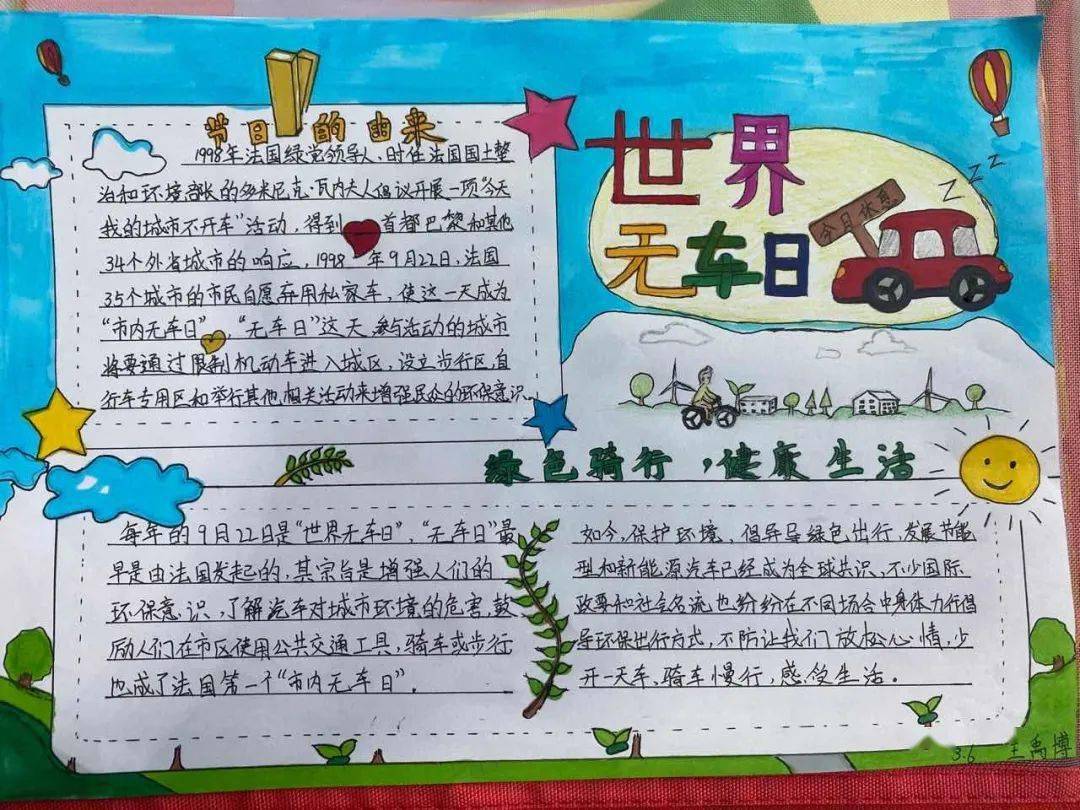 世界
无车日
今日休息
ZZZ
节日的由来
1998年法国绿党领导人、时任法国国土整
治和环境部长的多米尼克·瓦内夫人倡议开展一项“今天
我的城市不开车”活动，得到首都巴黎和其他
34个外省城市的响应，1998年9月22日，法国
35个城市的市民自愿弃用私家车，使这一天成为
“市内无车日”，“无车日”这天，参与活动的城市
将要通过限制机动车进入城区，设立步行区，自
行车专用区和举行其他相关活动来增强民众的环保意识
绿色骑行，健康生活
每年的9月22日是“世界无车日”，“无车日”最
早是由法国发起的，其宗旨是增强人们的
环保意识，了解汽车对城市环境的危害，鼓
励人们在市区使用公共交通工具，骑车或步行
也成了法国第一个“市内无车日”。
如今，保护环境、倡导绿色出行，发展节能
型和新能源汽车已经成为全球共识，不少国际
政要和社会名流也纷纷在不同场合中身体力行倡
导环保出行方式，不防让我们放松心情，少
开一天车、骑车慢行，感受生活。
3.6 王禹博